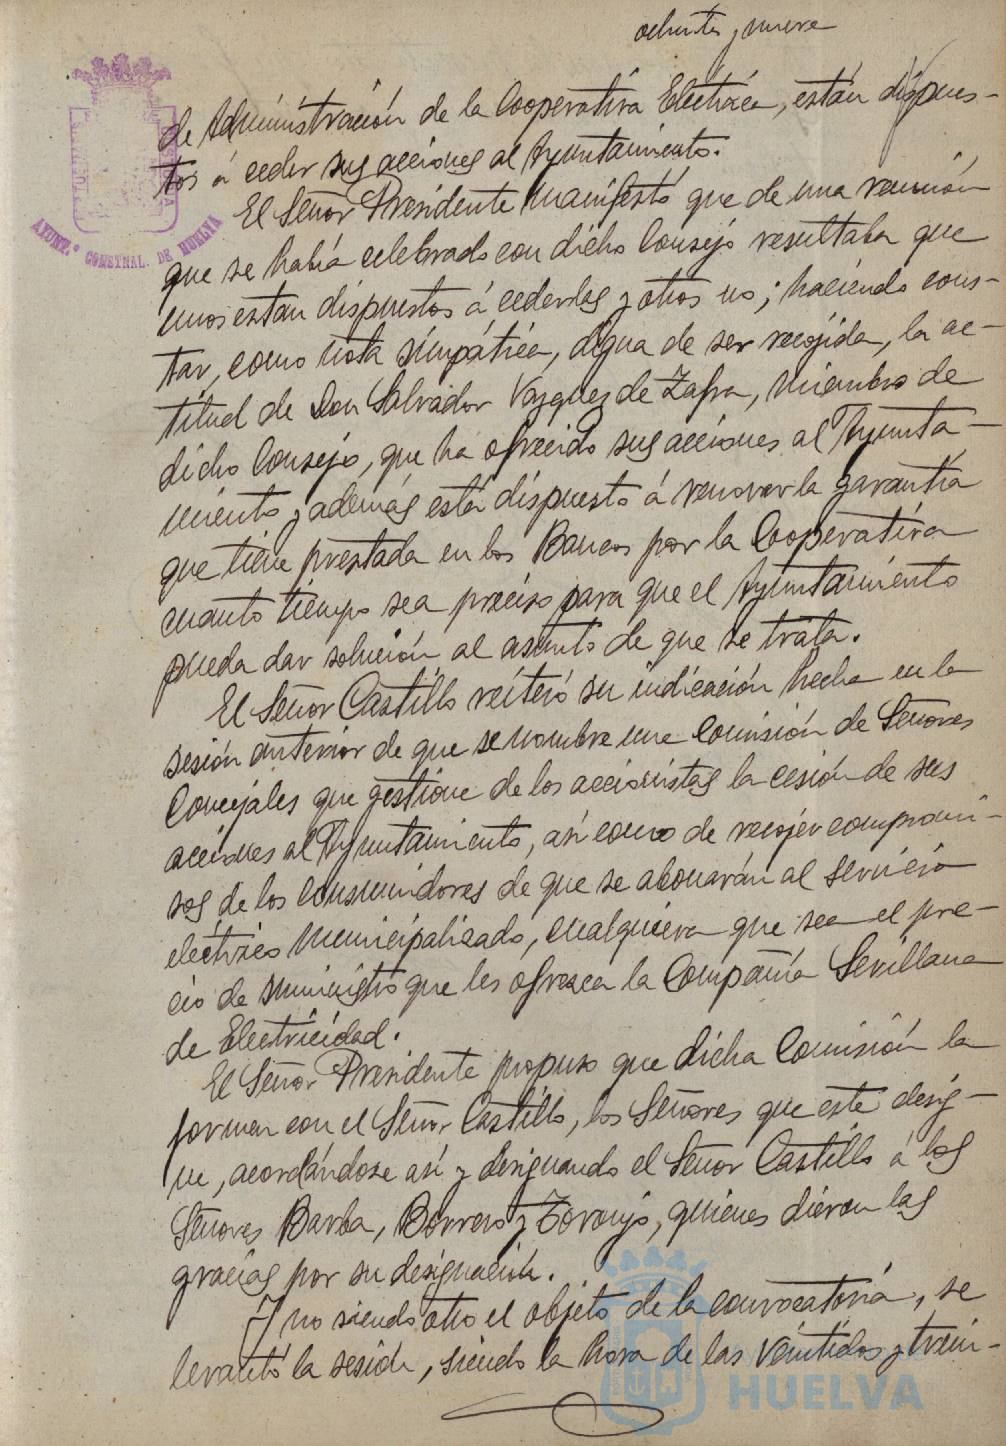 ochenta y nueve
de Administración de la Cooperativa Electrica, están dispues-
tos á ceder sus acciones al Ayuntamiento.
El Señor Presidente manifestó que de una reunión
que se había celebrado con dicho Consejo resultaba que
unos estan dispuestos á cederlas y otros no; haciendo cons-
tar, como nota simpática, digna de ser recojida, la ac-
titud de Don Salvador Vazquez de Zafra, miembro de
dicho Consejo, que ha ofrecido sus acciones al Ayunta-
miento y además está dispuesto á renovar la garantía
que tiene prestada en los Bancos por la Cooperativa
cuanto tiempo sea preciso para que el Ayuntamiento
pueda dar solución al asunto de que se trata.
El Señor Castillo reiteró su indicación hecha en la
sesión anterior de que se nombre una Comisión de Señores
Concejales que gestione de los accionistas la cesión de sus
acciones al Ayuntamiento, así como de recojer compromi-
sos de los consumidores de que se abonarán al servicio
eléctrico municipalizado, cualquiera que sea el pre-
cio de suministro que les ofrezca la Compañía Sevillana
de Electricidad.
El Señor Presidente propuso que dicha Comisión la
formen con el Señor Castillo, los Señores que este desig-
ne, acordándose así y designando el Señor Castillo á los
Señores Barba, Borrero y Toronjo, quienes dieron las
gracias por su designación.
Y no siendo otro el objeto de la convocatoria, se
levantó la sesión, siendo la hora de las veintidos y trein-
AYUNT.º CONSTNAL. DE HUELVA
HUELVA